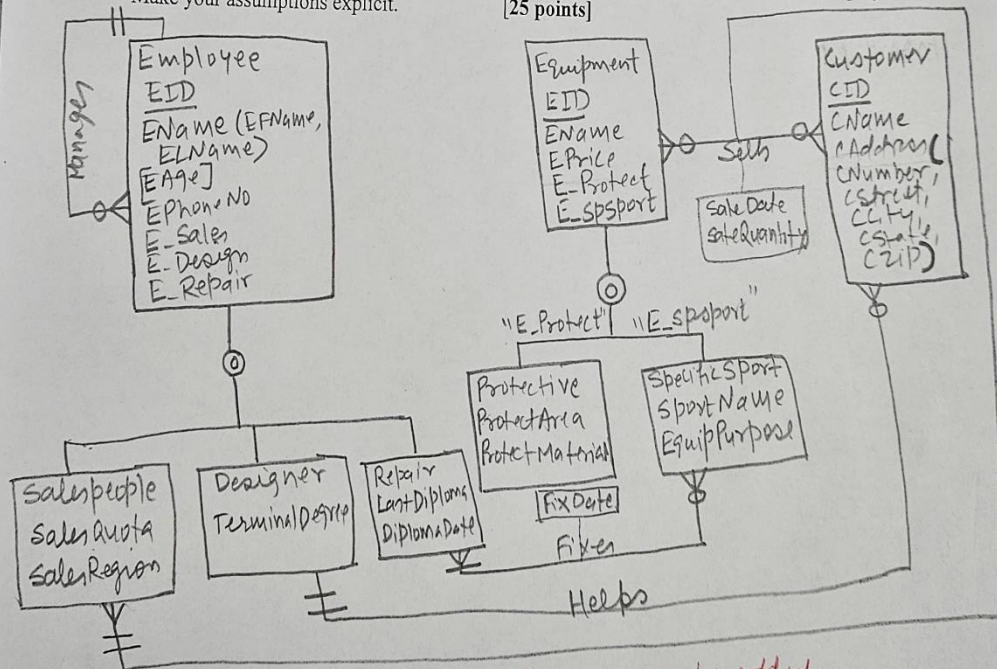 Make your assumptions explicit.
[25 points]
Manages
Employee
EID
EName (EFName,
ELName)
[EAge]
EPhoneNo
E_Sales
E_Design
E_Repair
Equipment
EID
EName
EPrice
E_Protect
E_spsport
Sells
SaleDate
SaleQuantity
Customer
CID
CName
CAddress(
CNumber,
CStreet,
CCity,
CState,
CZip)
"E_Protect" "E_spsport"
Protective
ProtectArea
ProtectMaterial
SpecificSport
SportName
EquipPurpose
Salespeople
SalesQuota
SalesRegion
Designer
TerminalDegree
Repair
LastDiploma
DiplomaDate
FixDate
Fixes
Helps